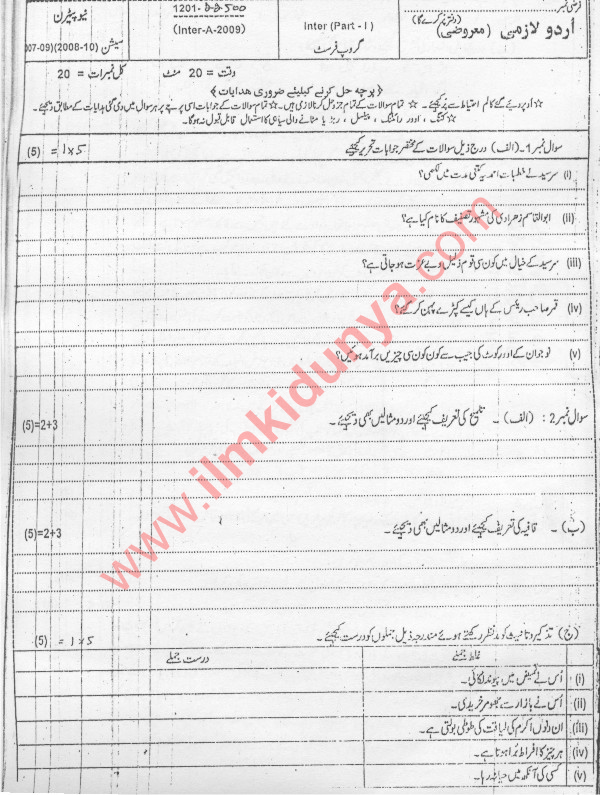 نیو پیٹرن
سیشن (2008-10)(2007-09)
1201
(Inter-A-2009)
Inter (Part - I)
گروپ فرسٹ
فرضی نمبر
(دفتر پُر کرے گا)
اُردو لازمی (معروضی)
وقت = 20 منٹ کل نمبرات = 20
﴿پرچہ حل کرنے کیلئے ضروری ھدایات﴾
☆ اُوپر دیئے گئے کالم احتیاط سے پُر کیجئے۔ ☆ تمام سوالات کے تمام جز و حل کرنا لازمی ہیں۔ ☆ تمام سوالات کے جوابات اسی پرچے پر ہر سوال میں دی گئی ہدایات کے مطابق دیجئے۔
☆ کٹنگ، اوور رائٹنگ، پینسل، ربڑ یا مٹانے والی سیاہی کا استعمال قابل قبول نہ ہوگا۔
سوال نمبر 1۔ (الف) درج ذیل سوالات کے مختصر جوابات تحریر کیجئے (5) = 1×5
(i) سرسید نے خطبات احمدیہ کتنی مدت میں لکھی؟
(ii) ابوالقاسم زهراوی کی مشہور تصنیف کا نام کیا ہے؟
(iii) سرسید کے خیال میں کون سی قوم ذلیل و بے عزت ہو جاتی ہے؟
(iv) قمر صاحب رئیس کے ہاں کیسے کپڑے پہن کر گئے؟
(v) نوجوان کے اوورکوٹ کی جیب سے کون کون سی چیزیں برآمد ہوئیں؟
سوال نمبر 2: (الف)۔ تلمیح کی تعریف کیجئے اور دو مثالیں بھی دیجئے۔ (5)=2+3
(ب)۔ قافیہ کی تعریف کیجئے اور دو مثالیں بھی دیجئے۔ (5)=2+3
(ج) تذکیر و تانیث کو مدنظر رکھتے ہوئے مندرجہ ذیل جملوں کو درست کیجئے۔ (5) = 1×5
غلط جملے درست جملے
(i) اُس نے قمیض میں پیوند لگائی۔
(ii) اُس نے بازار سے جھومر خریدی۔
(iii) ان دنوں اکرم کی لیاقت کی طوطی بولتی ہے۔
(iv) ہر چیز کا افراط بُرا ہوتا ہے۔
(v) کسی کی آنکھ میں حیا نہ رہا۔
www.ilmkidunya.com